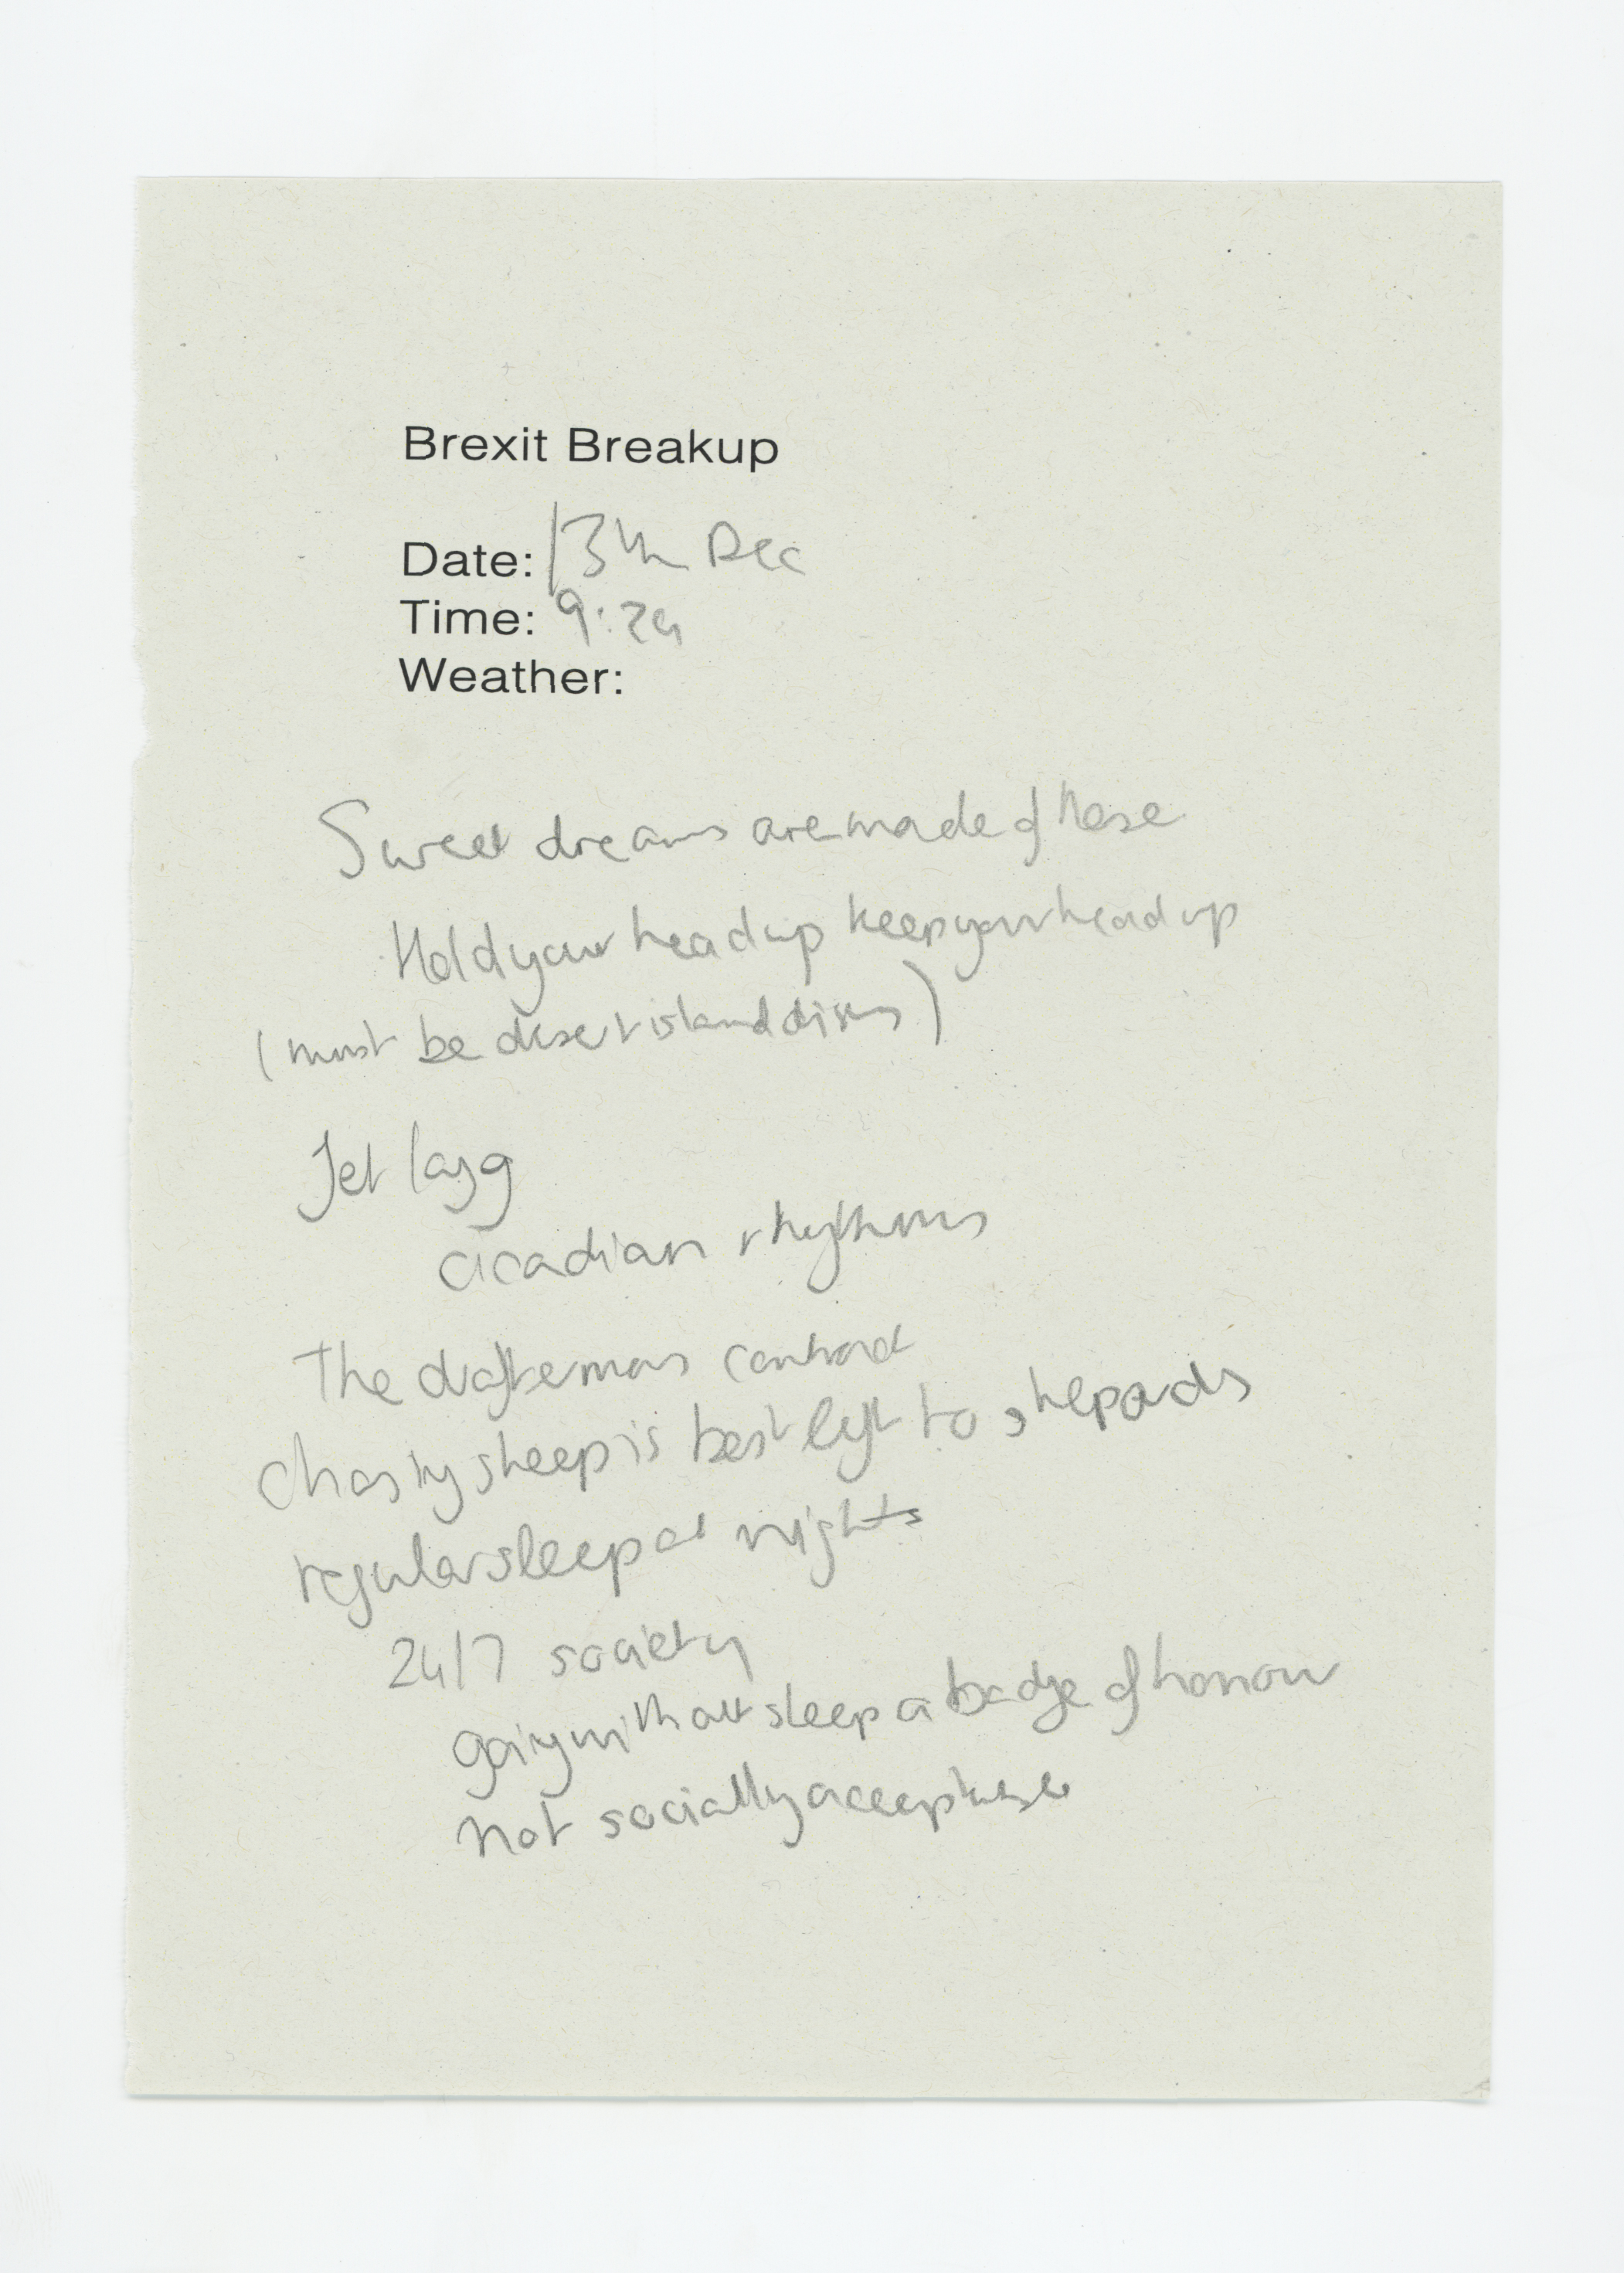 Brexit Breakup
Date: 13th Dec
Time: 9:24
Weather:
Sweet dreams are made of these
Hold your head up keep your head up
(must be desert island discs)
Jet lagg
cicadian rhythms
The draftsmans contract
Chasing sheep is best left to shepards
regular sleep at nights
24/7 society
going without sleep a badge of honour
not socially